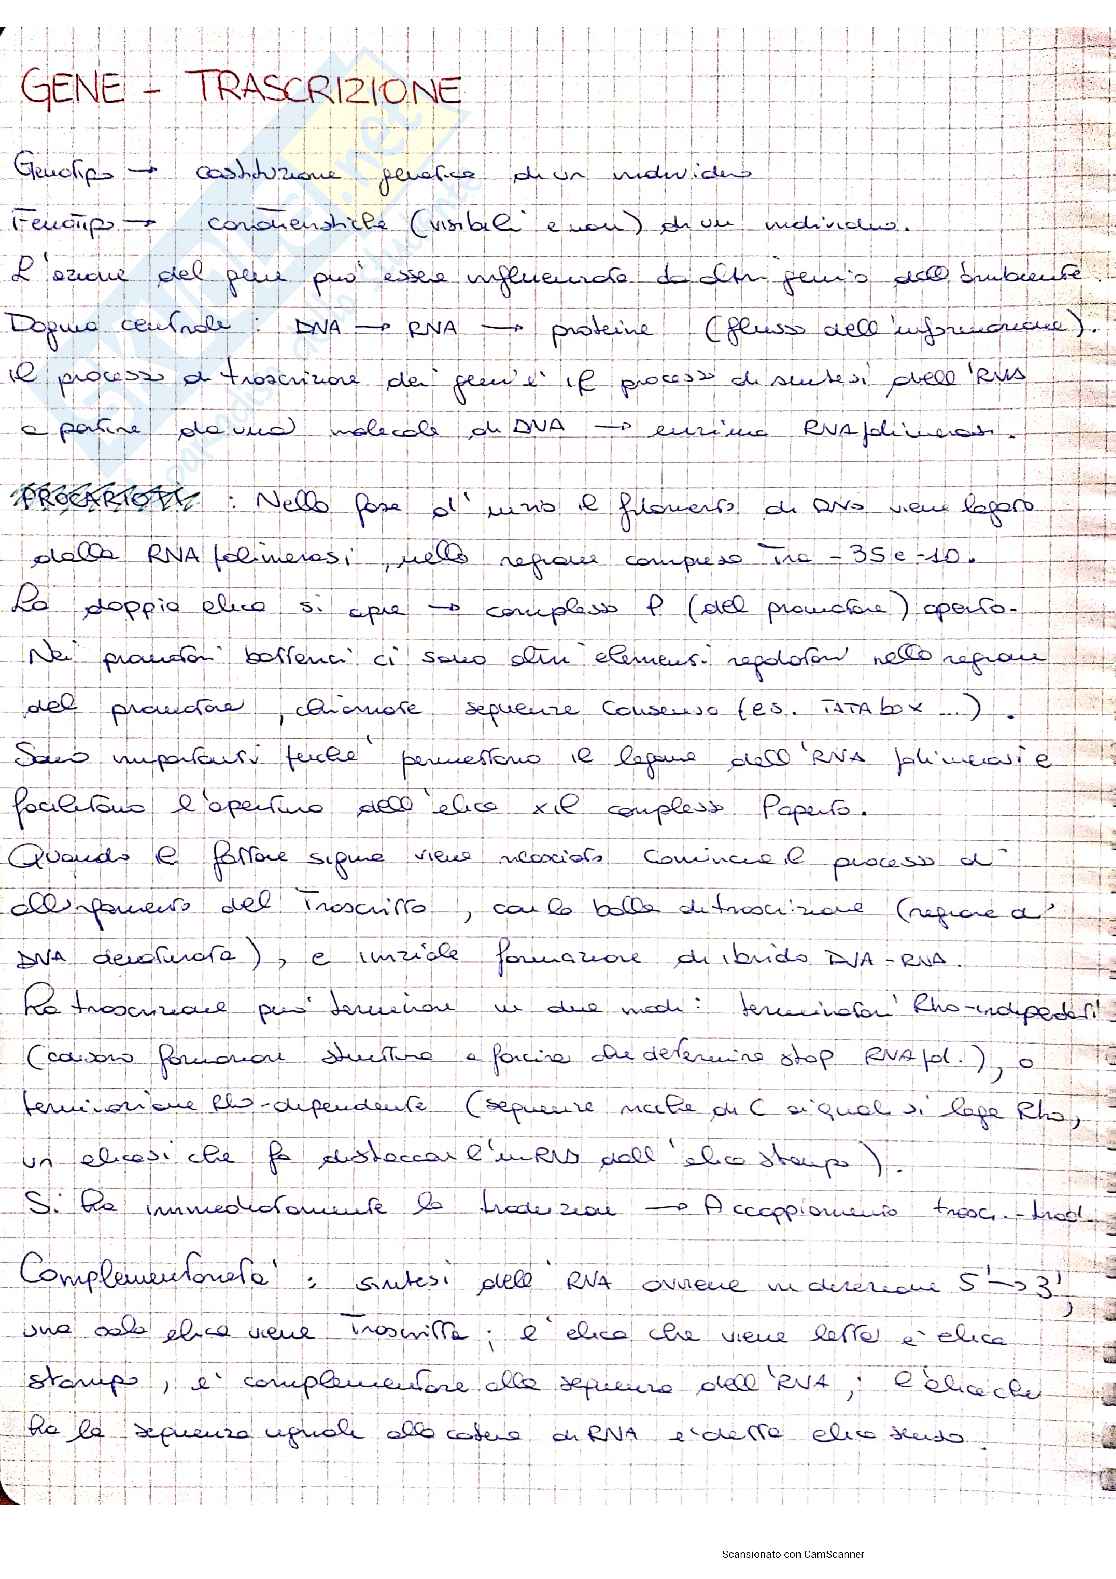 GENE - TRASCRIZIONE
Genotipo → costituzione genetica di un individuo
Fenotipo → caratteristiche (visibili e non) di un individuo.
L'azione del gene può essere influenzata da altri geni o dall'ambiente
Dogma centrale : DNA → RNA → proteine (flusso dell'informazione).
il processo di trascrizione dei geni è il processo di sintesi dell'RNA
a partire da una molecola di DNA → enzima RNA polimerasi.
PROCARIOTI : Nella fase d'inizio il filamento di DNA viene legato
dalla RNA polimerasi, nella regione compresa tra -35 e -10.
La doppia elica si apre → complesso P (del promotore) aperto.
Nei promotori batterici ci sono altri elementi regolatori nella regione
del promotore, chiamate sequenze consenso (es. TATA box ...).
Sono importanti perché permettono il legame dell'RNA polimerasi e
facilitano l'apertura dell'elica x il complesso P aperto.
Quando il fattore sigma viene rilasciato comincia il processo di
allungamento del trascritto, con la bolla di trascrizione (regione di
DNA denaturata), e iniziale formazione di ibrido DNA-RNA.
La trascrizione può terminare in due modi: terminatori Rho-indipedenti
(causano formazione struttura a forcina che determina stop RNA pol.), o
terminazione Rho-dipendente (sequenze ricche di C ai quali si lega Rho,
un elicasi che fa distaccare l'mRNA dall'elica stampo).
Si ha immediatamente la traduzione → Accoppiamento trasc.-trad.
Complementarietà : sintesi dell'RNA avviene in direzione 5'→3',
una sola elica viene trascritta; l'elica che viene letta è elica
stampo, è complementare alla sequenza dell'RNA; l'elica che
ha la sequenza uguale alla catena di RNA è detta elica senso.
Scansionato con CamScanner